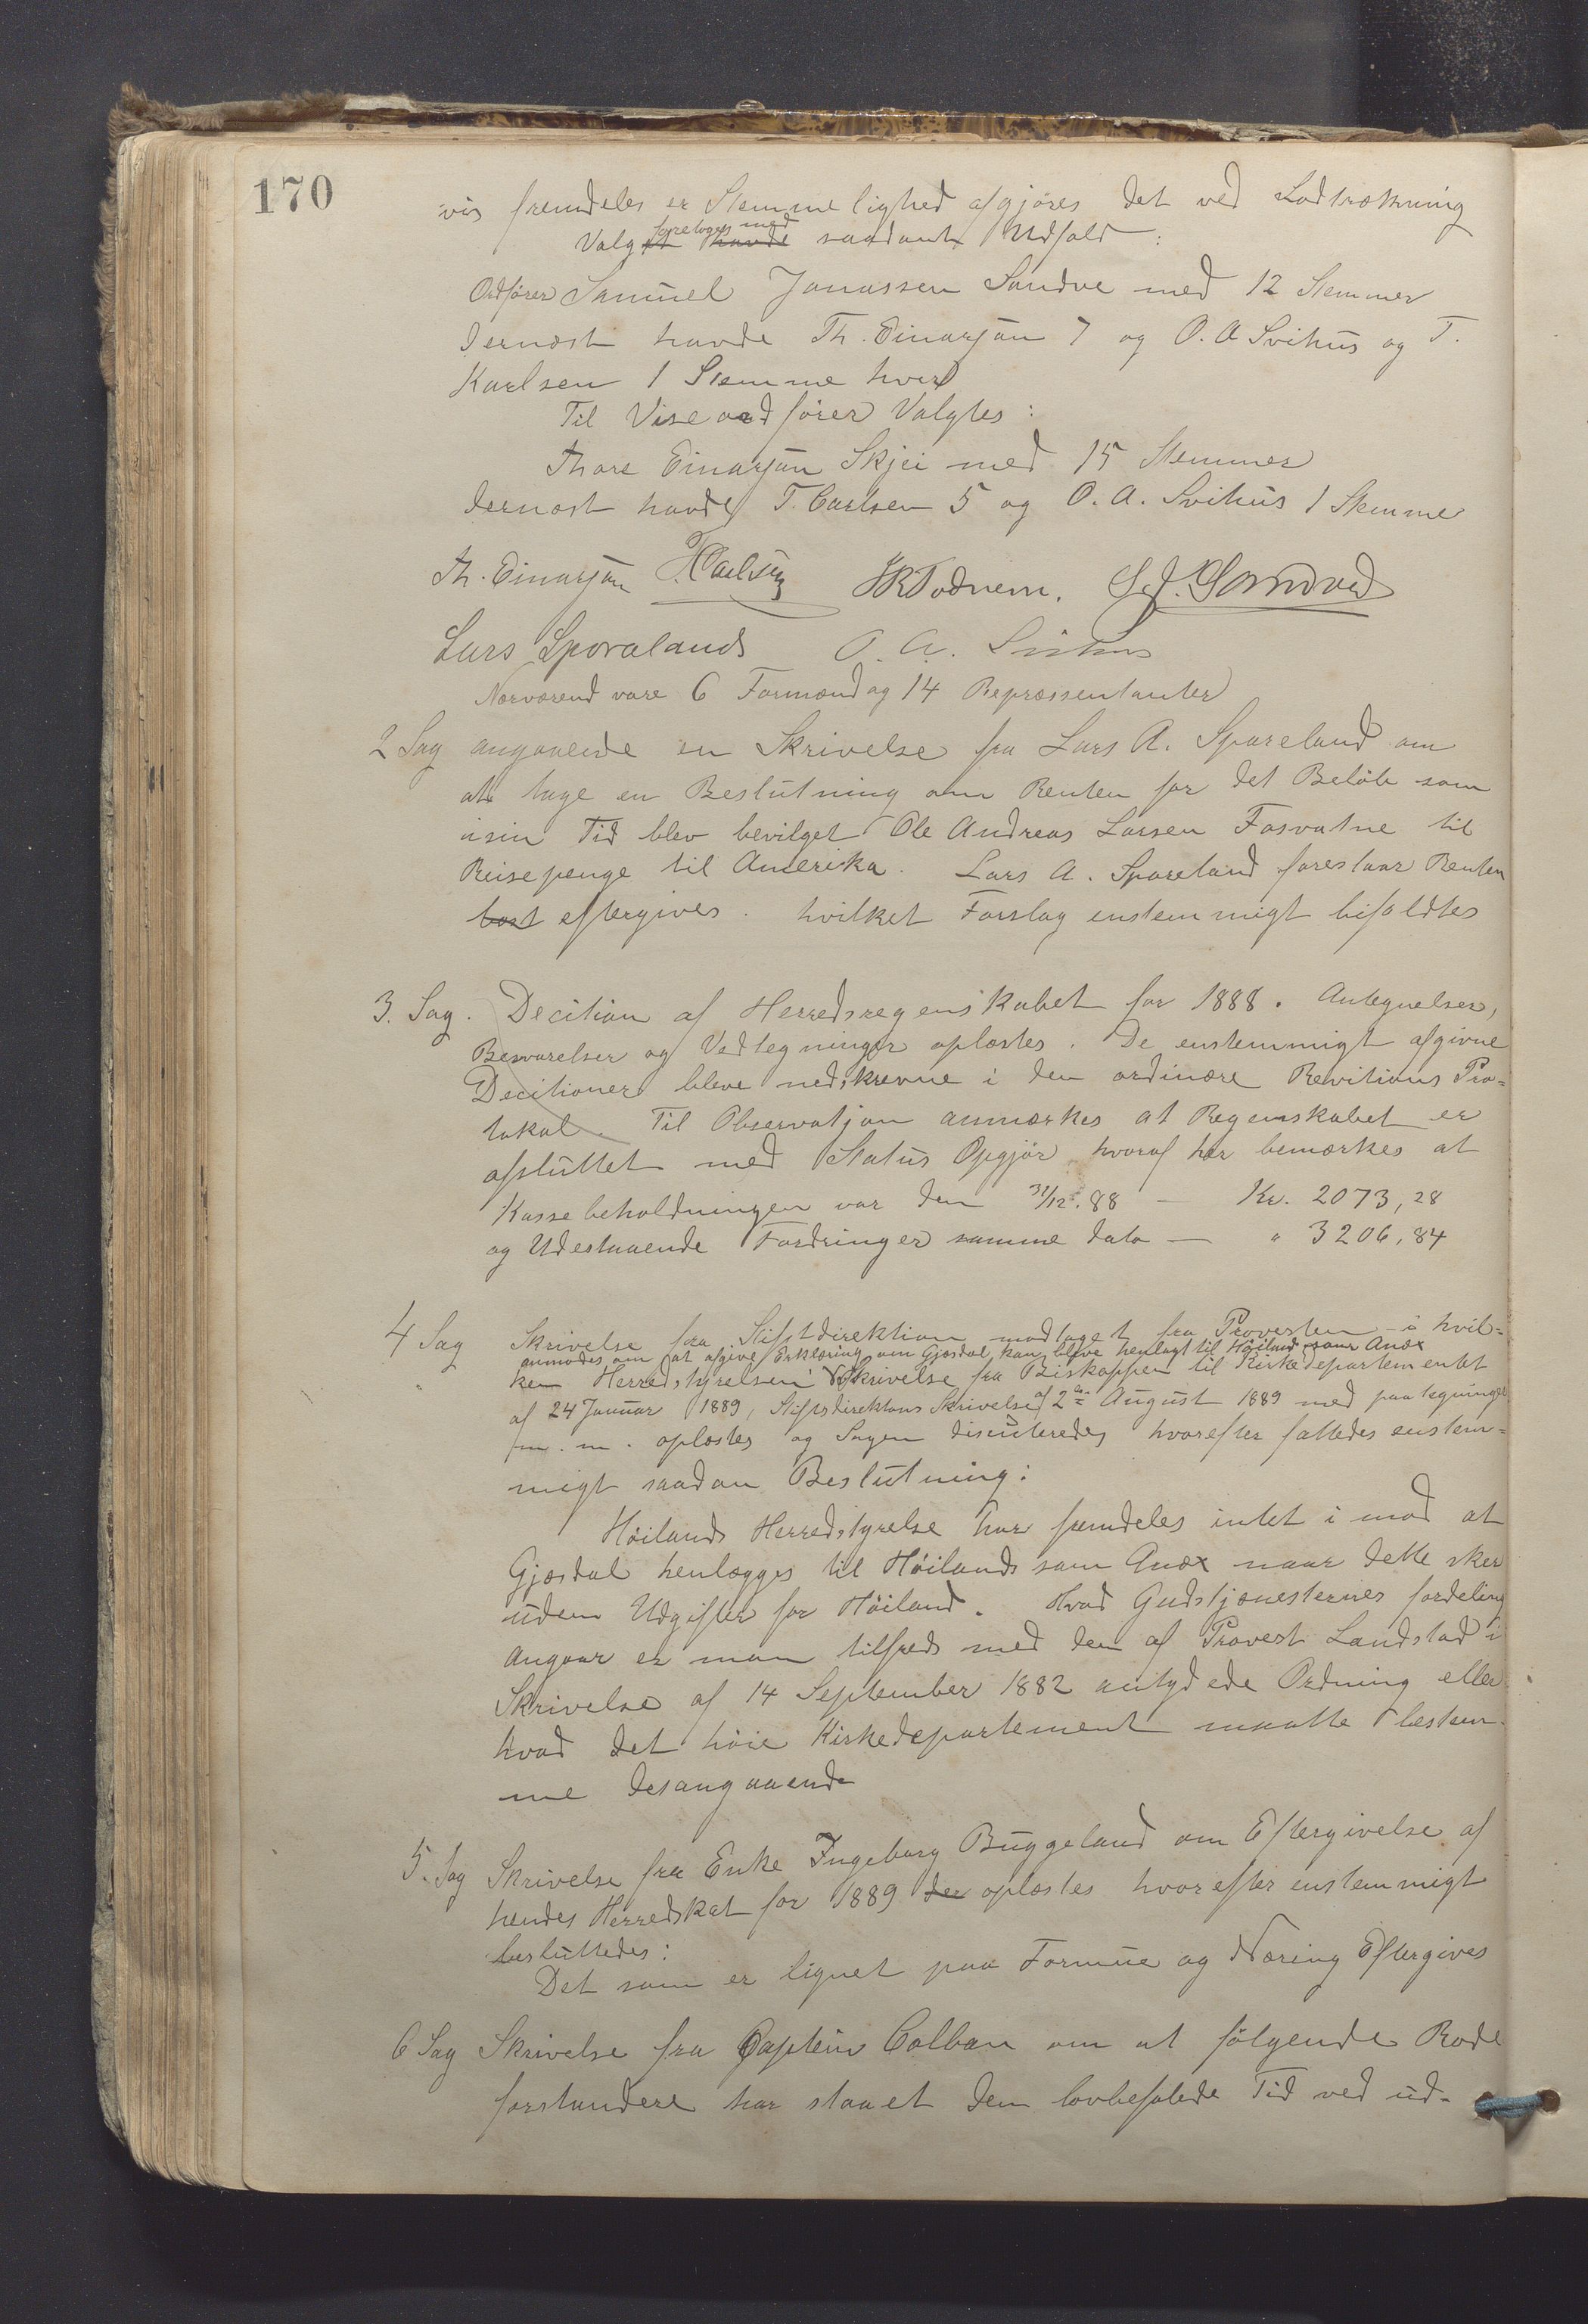 170
vis fremdeles er Stemmelighed afgjøres det ved Lodtrækning
foretoges med
Valget havde saadant Udfald:
Ordfører Samuel Jonassen Sandve med 12 Stemmer
dernæst havde Th. Einarsen 7 og O. A Svihus og T.
Karlsen 1 Stemme hver
Til Viseordfører Valgtes:
Thore Einarsen Skjei med 15 Stemmer
dernæst havde T. Carlsen 5 og O. A. Svihus 1 Stemme
Th. Einarsen T. Carlsen Todnem. S. J. Sandved
Lars Sporaland O. A. Svihus
Nærværend vare 6 Formænd og 14 Repræssentanter
2 Sag angaaende en Skrivelse fra Lars A. Sporeland om
at tage en Beslutning om Renten for det Beløb som
isin Tid blev bevilget Ole Andreas Larsen Fosvatne til
Reisepenge til Amerika. Lars A. Sporeland foreslaar Renten
bort eftergives. hvilket Forslag enstemmigt bifaldtes
3. Sag. Decition af Herredsregenskabet for 1888. Antegnelser,
Besvarelser og Vedtegninger oplæstes. De enstemmigt afgivne
Decitioner bleve nedskrevne i den ordinære Revitions Pro=
tokol. Til Observatjon anmærkes at Regenskabet er
afsluttet med Status Opgjør hvoraf her bemærkes at
Kassebeholdningen var den 31/12. 88 — Kr. 2073,28
og Udestaaende Fordringer samme dato — " 3206,84
4 Sag Skrivelse fra Stiftdirektion modtaget fra Provesten i hvil=
anmodes om at afgive Erklæring om Gjesdal kan blive henlagt til Høiland som Anex
ken Herredstyrelsen Skrivelse fra Biskoppen til Kirkedepartementet
af 24 Januar 1889, Stiftsdirektions Skrivelse af 2den August 1889 med paategninger
m. m. oplæstes og Sagen discuteredes hvorefter fattedes enstem=
migt saadan Beslutning:
Høilands Herredstyrelse har fremdeles intet i mod at
Gjesdal henlægges til Høilands som Anex naar dette sker
uden Udgifter for Høiland. Hvad Gudstjenesternes fordeling
angaar er man tilfreds med den af Provest Landstad i
Skrivelse af 14 September 1882 antydede Ordning eller
hvad det høie Kirkedepartement maatte bestem-
me desangaaende
5. Sag Skrivelse fra Enke Ingeborg Buggeland om Eftergivelse af
hendes Herredskat for 1889 der oplæstes hvorefter enstemmigt
besluttedes:
Det som er lignet paa Formue og Næring Eftergives
6 Sag Skrivelse fra Captein Colban om at følgende Rode
forstandere har staaet den lovbefalede Tid ved ud-